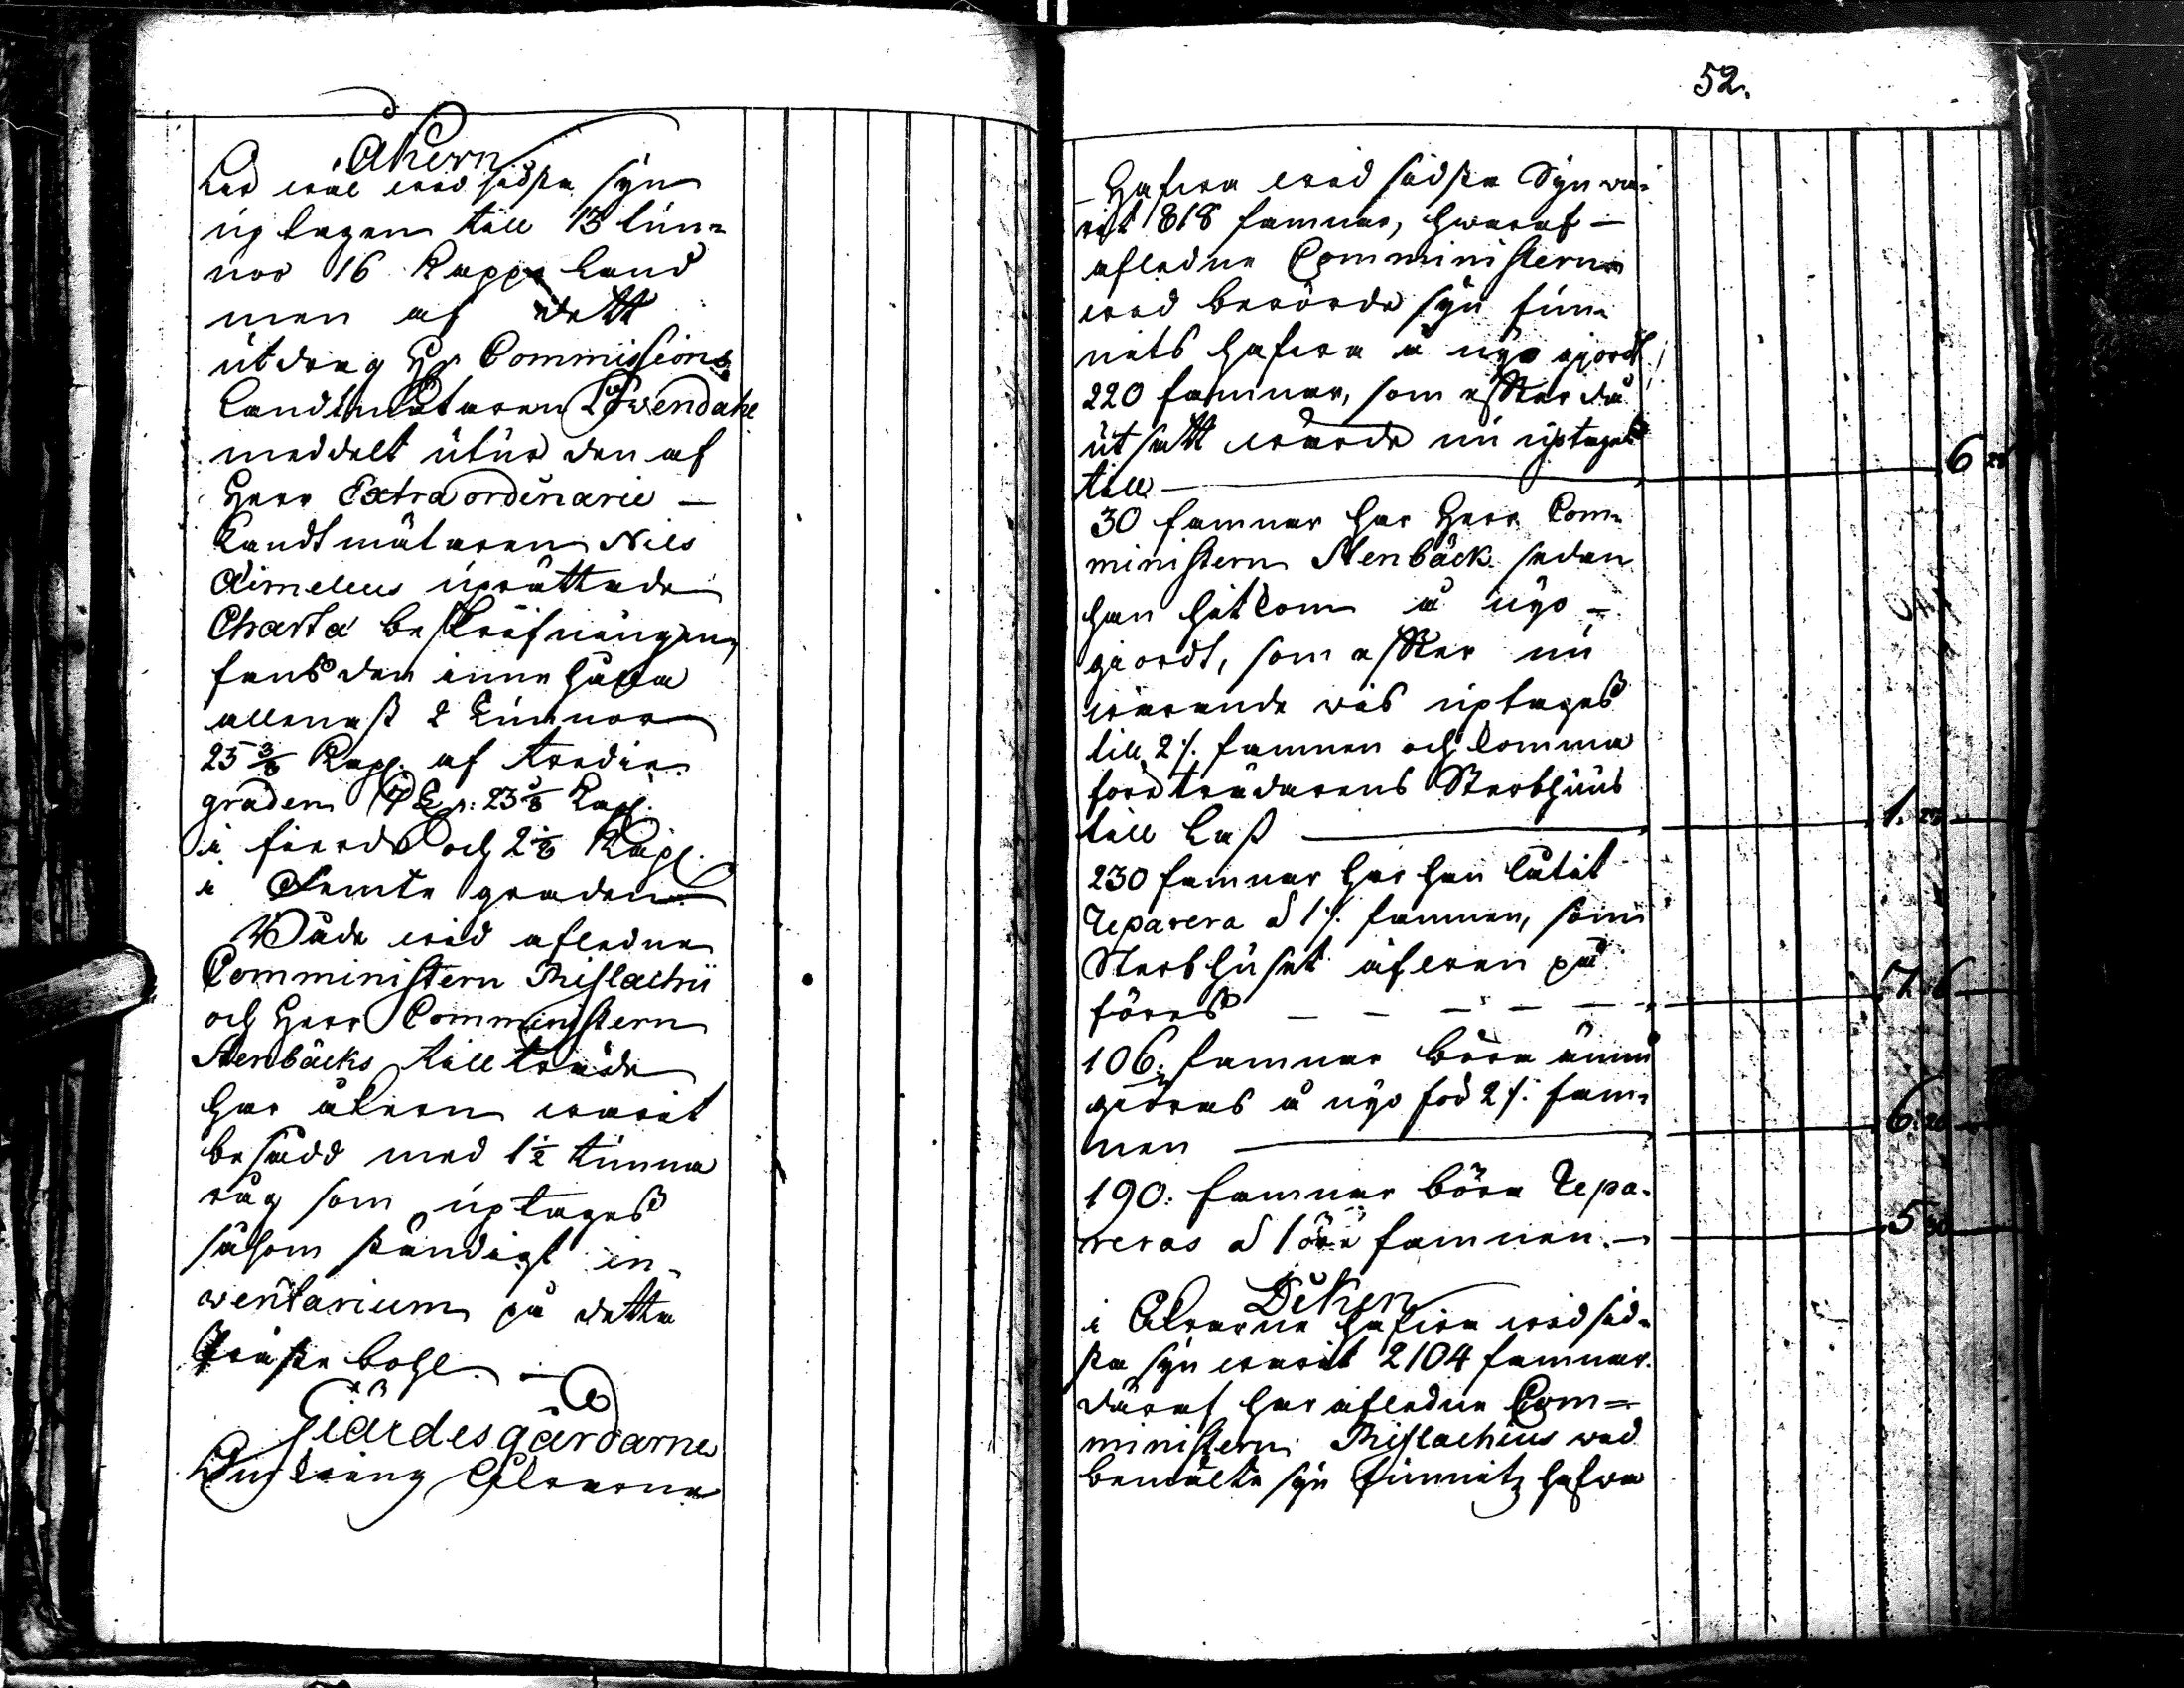 Åkern
har wäl wid sidsta syn
uptagen till 13 tun-
nor 16 Kappeland
men af dett
utdrag Hr Commissions
Landtmätaren Löwendahl
meddelt utur den af
Herr Extraordinarie —
Landtmätaren Nils
Aimelæus uprättade
Charta beskrifningen,
fans den innehålla
allenast 2 Tunnor
25 3/8 Kapl. af tredie
graden 23 5/8 Kapl.
i fierde och 2 1/8 Kapl.
i Femte graden.
Både wid afledne
Comministern Thislachii
och Herr Comministern
Stenbäcks tillträde
har åkern warit
besådd med 1 1/2 tunna
råg som uptages
såsom ständigt in-
ventarium på detta
Prästebohl. —
Giärdesgårdarne
Omkring Åkrarne
52.
Hafwa wid sidsta Syn wa-
rit 818 famnar, hwaraf —
afledne Comministern
wid berörde syn fun-
nits hafwa å nyo giordt
220 famnar, som efter då
utsatt wärde nu uptages
till — 6 20
30 famnar har Herr Com-
ministern Stenbäck sedan
han hitkom å nyo —
giordt, som efter nu
warande wis uptages
till 2 /. famnen och komma
företrädarens Sterbhuus
till last — 1. 28
230 famnar har han låtit
reparera á 1 /. famnen, som
Sterbhuset äfwen på
föres — — — — — 7. 6
106. famnar böra ännu
giöras å nyo för 2 /. fam-
nen — 6. 20
190. famnar böra repa-
reras á 1 öre famnen. — 5 30
Diken
i Åkrarne hafwa wid sid-
sta syn warit 2104 famnar.
däraf har afledne Com-
ministern Thislachius wid
bemälte syn funnitz hafwa